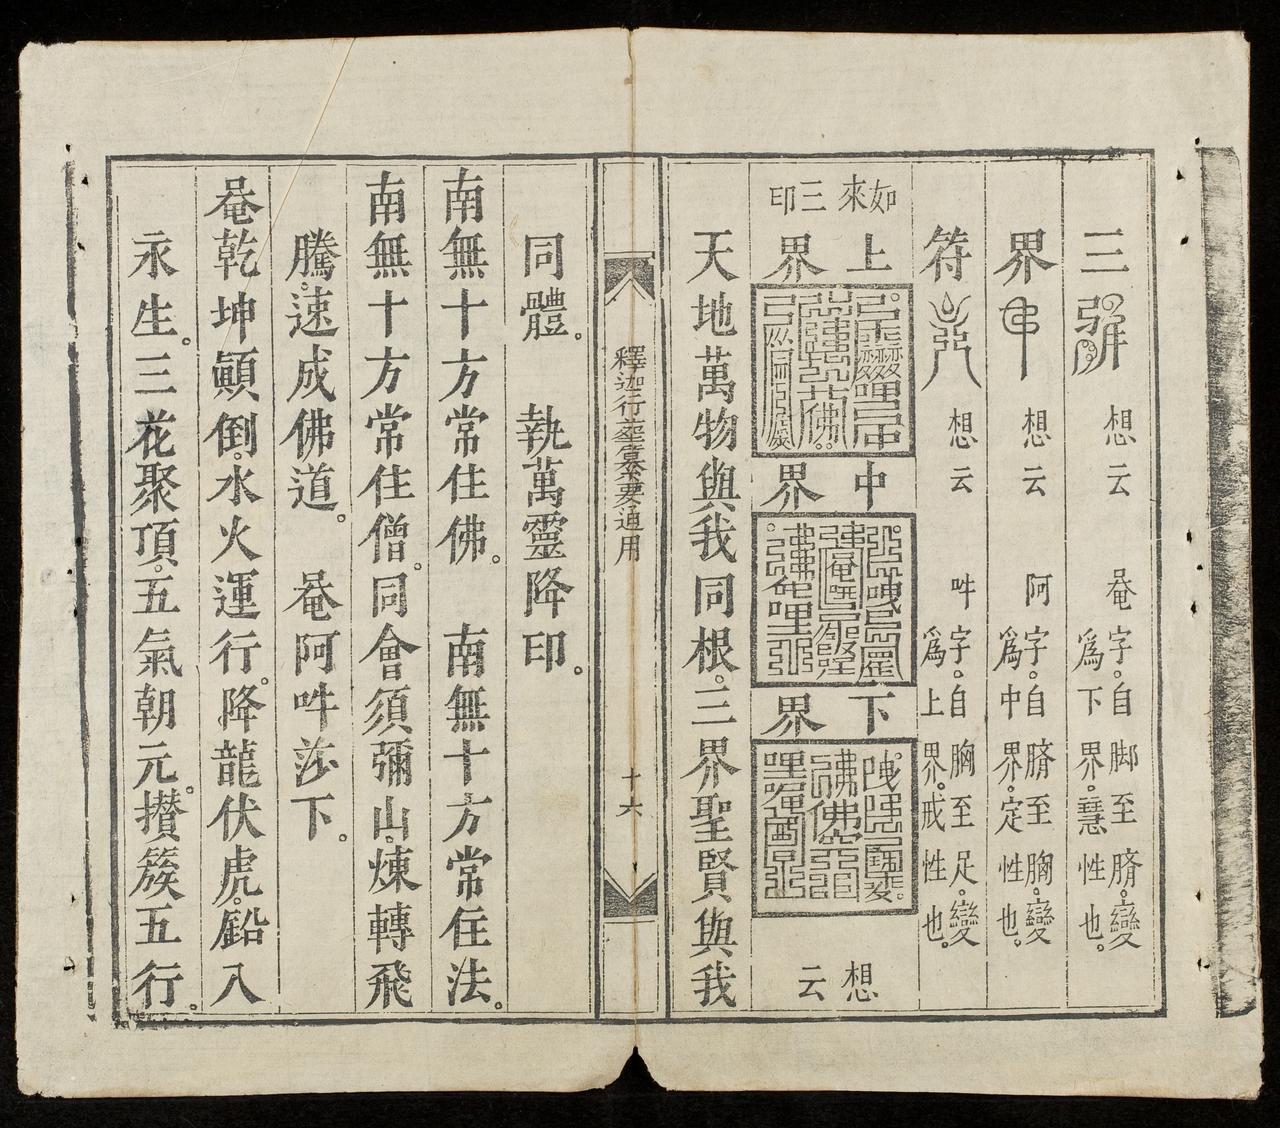 三 想云 唵字自脚至臍變
爲下界慧性也
界 想云 阿字自臍至胸變
爲中界定性也
符 想云 吽字自胸至足變
爲上界戒性也
如來三印
上界
中界
下界
想云
天地萬物與我同根三界聖賢與我
釋迦行𦶜纂要通用
十六
同體 執萬靈降印
南無十方常住佛 南無十方常住法
南無十方常住僧同會須彌山煉轉飛
騰速成佛道 唵阿吽莎下
唵乾坤顚倒水火運行降龍伏虎鉛入
汞生三花聚頂五氣朝元攅簇五行